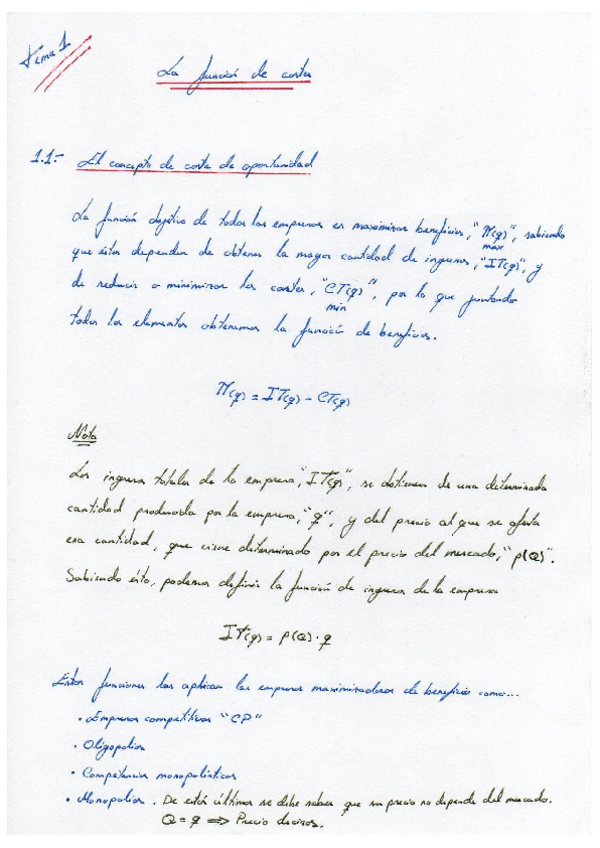 Tema 1
La función de costes
1.1.- El concepto de coste de oportunidad
La función objetivo de todas las empresas es maximizar beneficios, "π(q)", sabiendo
max
que éstos dependen de obtener la mayor cantidad de ingresos, "IT(q)", y
de reducir o minimizar los costes, "CT(q)", por lo que juntando
min
todos los elementos obtenemos la función de beneficios.
π(q) = IT(q) - CT(q)
Nota
Los ingresos totales de la empresa, "IT(q)", se obtienen de una determinada
cantidad producida por la empresa, "q", y del precio al que se oferta
esa cantidad, que viene determinado por el precio del mercado, "p(Q)".
Sabiendo ésto, podemos definir la función de ingresos de la empresa
IT(q) = p(Q) · q
Estas funciones las aplican las empresas maximizadoras de beneficio como...
· Empresas competitivas "CP"
· Oligopolios
· Competencias monopolísticas
· Monopolios. De estós últimos se debe saber que su precio no depende del mercado.
Q = q ⇒ Precio decisor.